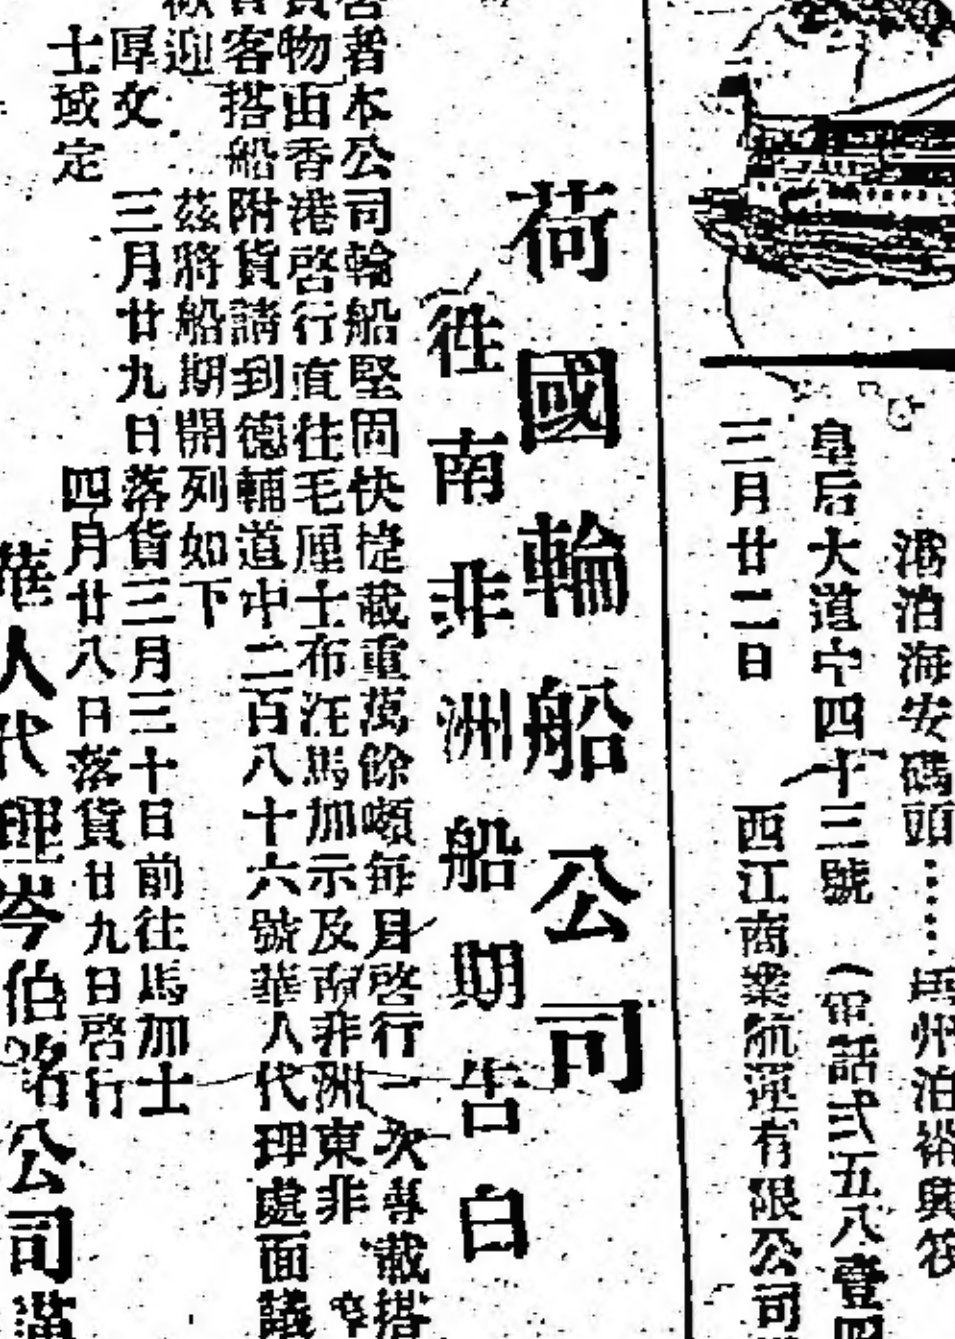 港泊海安碼頭⋯⋯ 州泊裕興
皇后大道中四十三號 (電話弍五八壹四
三月廿二日 西江商業航運有限公司
荷國輪船公司
徃南非洲船期告白
啓者本公司輪船堅固快捷載重萬餘噸每月啓行一次專載搭
貨物由香港啓行直往毛厘士布汪馬加示及南非洲東非
客搭船附貨請到德輔道中二百八十六號華人代理處面議
歡迎 茲將船期開列如下
厚文 三月廿九日落貨三月三十日前往馬加士
士域定 四月廿八日落貨廿九日啓行
華人代理岑伯銘公司謹